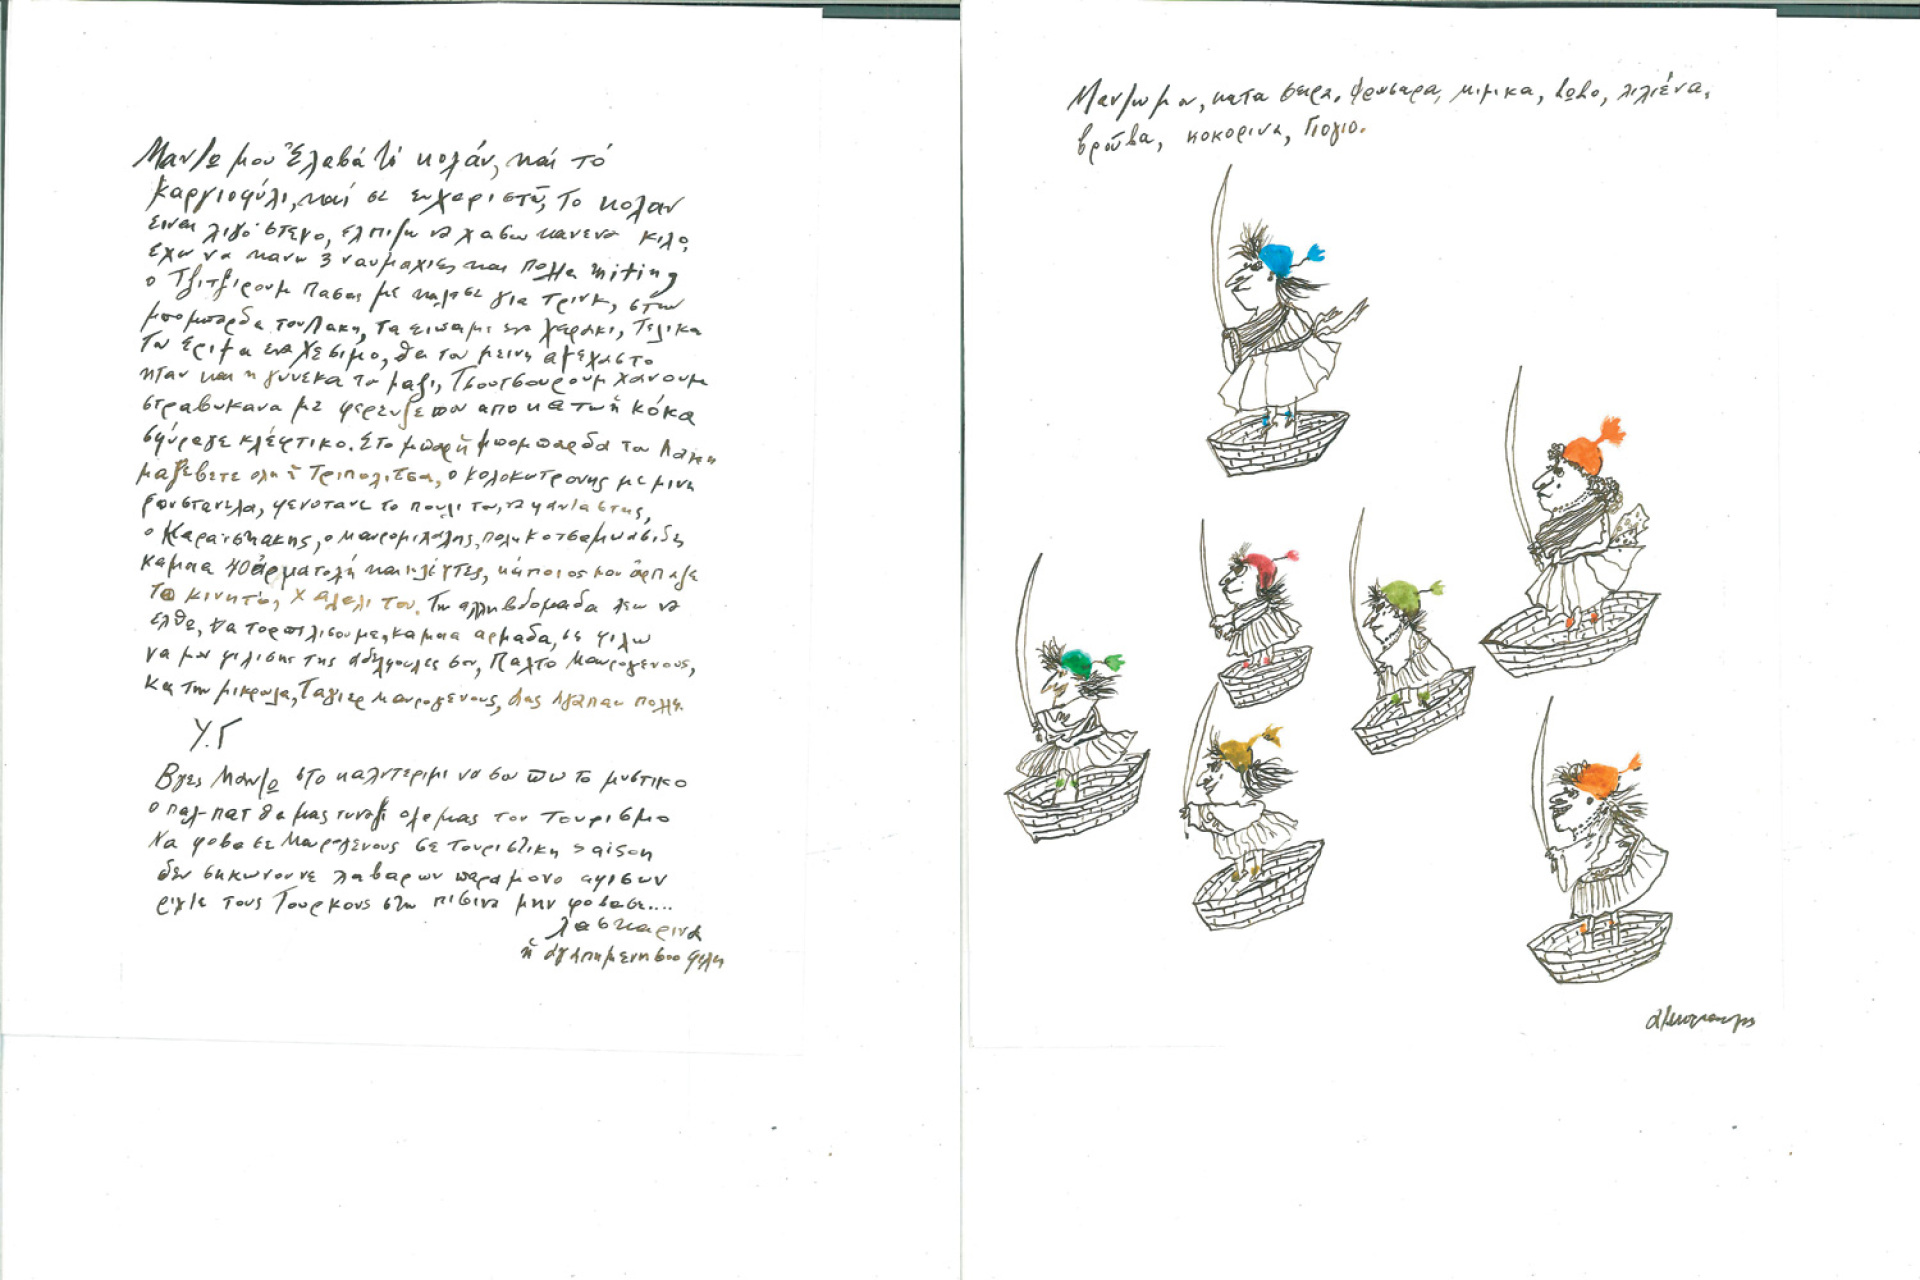 Μαντω μου Ἔλαβα τό κολάν, καί τό
καργιοφύλι, καί σε ευχαριστῶ, Το κολαν
ειναι λιγο στενο, ελπιζω να χασω κανενα κιλο,
Εχω να κανω 3 ναυμαχιες και πολλα miting
ο Τζιτζιρουμ Πασας με καλεσε για τρινκ, στην
μπομπαρδα του Λακη, τα ειπαμε ενα χερακι, Τελικα
Του εριξα ενα χεσιμο, θα του μεινη αξεχαστο
ηταν και η γυνεκα του μαζι, Τσουτσουρουμ χανουμ
στραβοκανα με φερεντζε που απο κατω ἡ κόκα
σφύραγε κλέφτικο. Στο μπαρ ἡ μπομπαρδα του Λακη
μαζεβετε ολη ἡ Τριπολιτσα, ο Κολοκοτρονης με μινι
φουστανελα, φενοτανε το πουλι του, να φανταστης,
ο Καραισκακης, ο Μαυρομιχαλης, πολη κοτσαμπασιδες
καμια 40 ἀρματολη και κλεφτες, κάποιος μου ἅρπαξε
Το κινητό, χαλαλι του. Την αλλη βδομαδα λεω να
ελθω, να τορπιλισουμε καμια αρμαδα, σε φιλω
να μου φιλισης της αδελφουλες σου, Παλτο Μαυρογενους,
και την μικρουλα, Ταγιερ Μαυρογενους, σας αγαπαω πολλη.
Υ.Γ
Βγες Μαντω στο καλντεριμι να σου πω το μυστικο
ο παλ-πατ θα μας τιναξι ολε μας τον τουρισμο
Μα φοβασε Μαυρογενους σε τουριστικη saison
δεν σηκωνουνε λαβαρων παρα μονο αφισων
ριχτε τους Τουρκους στην πισινα μην φοβασε....
Λασκαρινα
ἡ ἀγαπημενη σου φιλη
Μαντω μου, κατα σειρα, Φρυσαρα, μιμικα, Ζωζο, λιλιένα,
βρούβα, κοκορινα, Γιογιο.